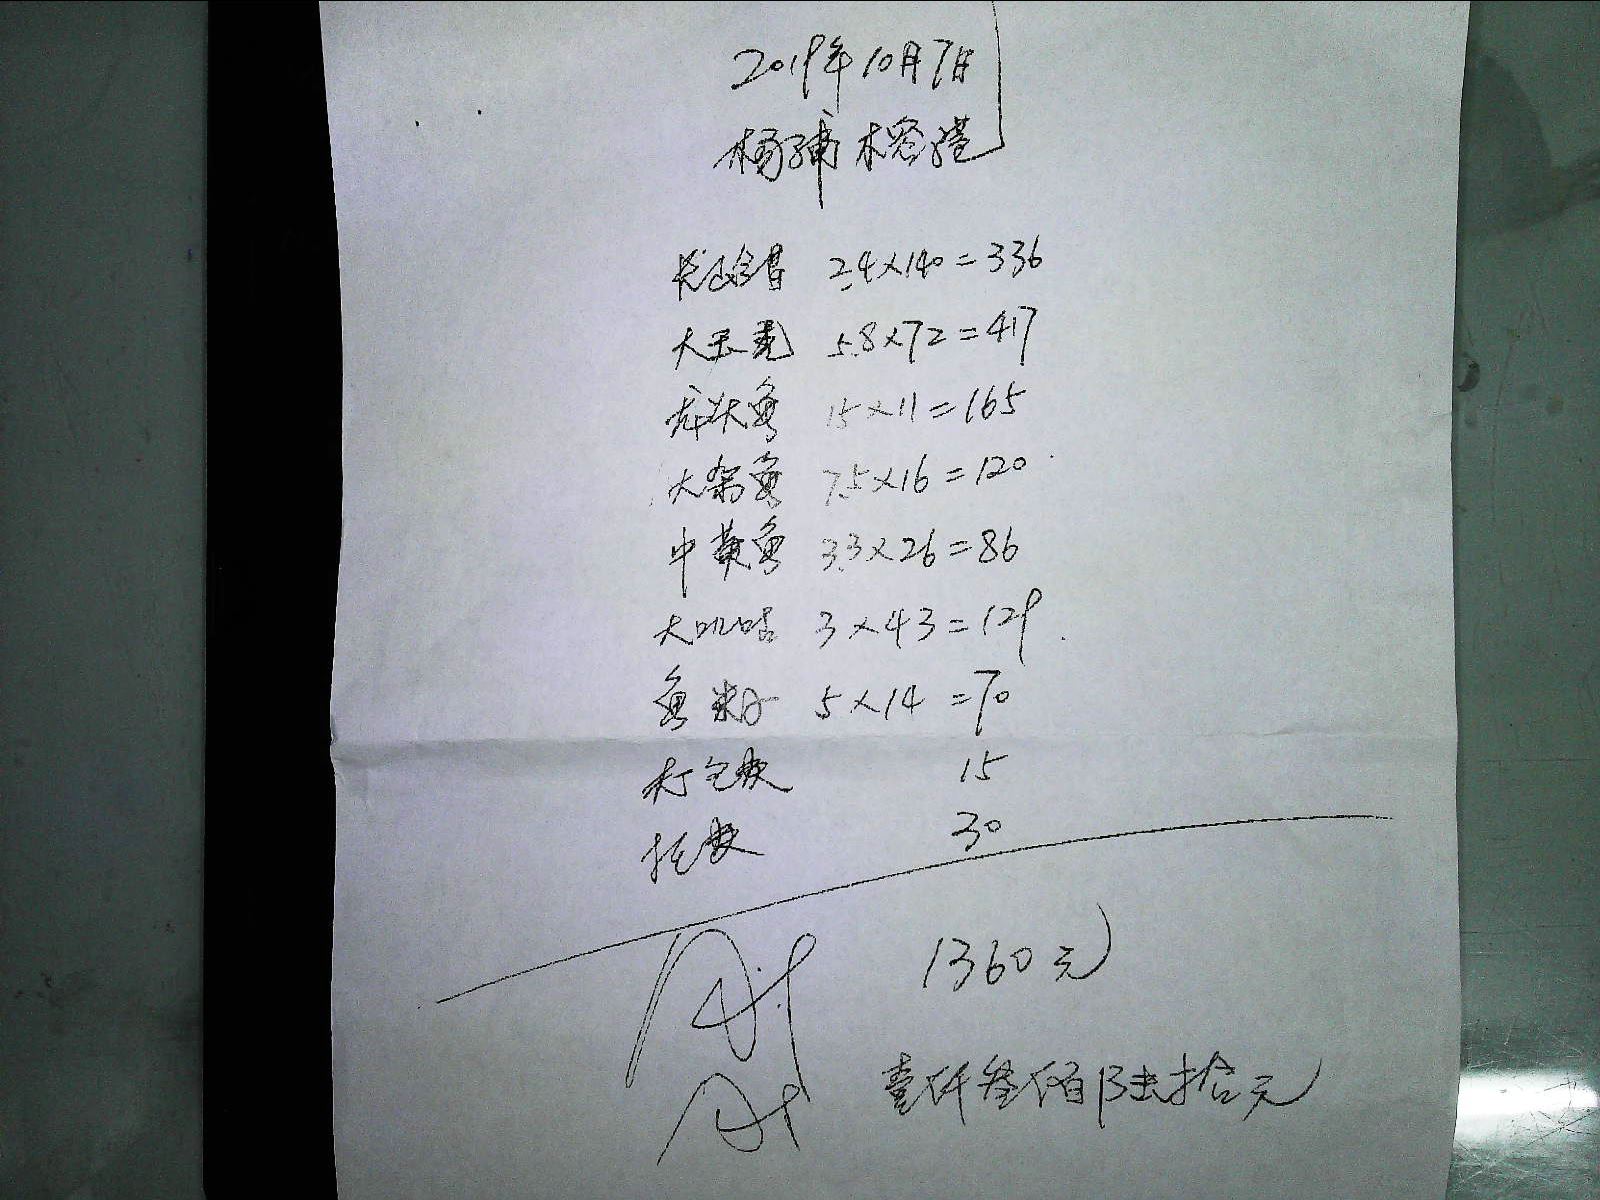 2019年10月7日
杨浦
2.4×140=336
大 5.8×72=417
15×11=165
大 鱼 7.5×16=120
中黄鱼 3.3×26=86
大 3×43=129
鱼籽 5×14=70
打包费 15
托费 30
1360元
壹仟叁佰陆拾元